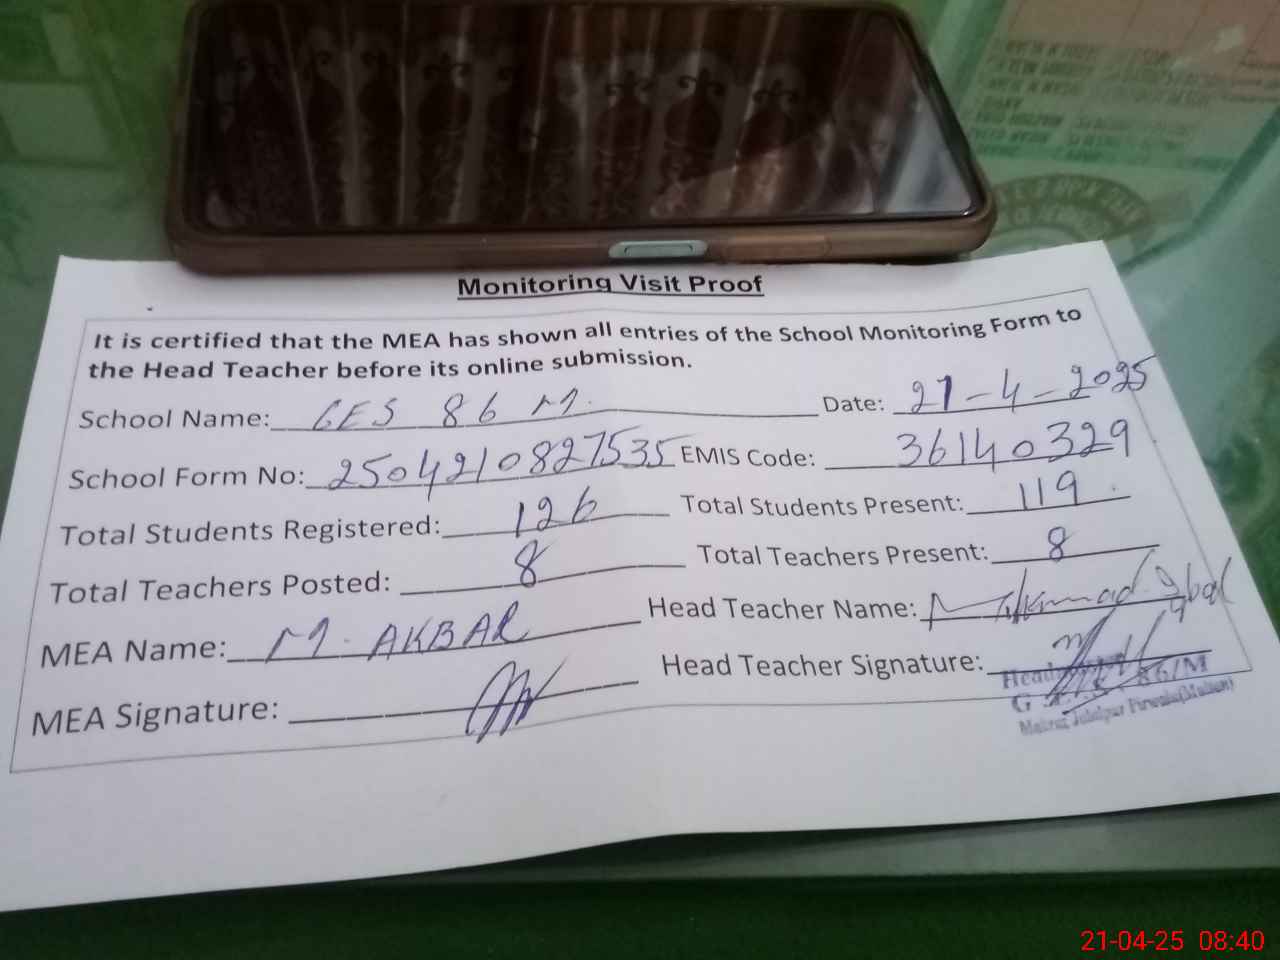 Monitoring Visit Proof
It is certified that the MEA has shown all entries of the School Monitoring Form to
the Head Teacher before its online submission.
School Name: GES 86 M. Date: 21-4-2025
School Form No: 2504210827535 EMIS Code: 36140329
Total Students Registered: 126 Total Students Present: 119
Total Teachers Posted: 8 Total Teachers Present: 8
MEA Name: M. AKBAR Head Teacher Name: Muhammad Iqbal
MEA Signature: Head Teacher Signature:
86/M
Jalalpur Pirwala(Multan)
21-04-25 08:40